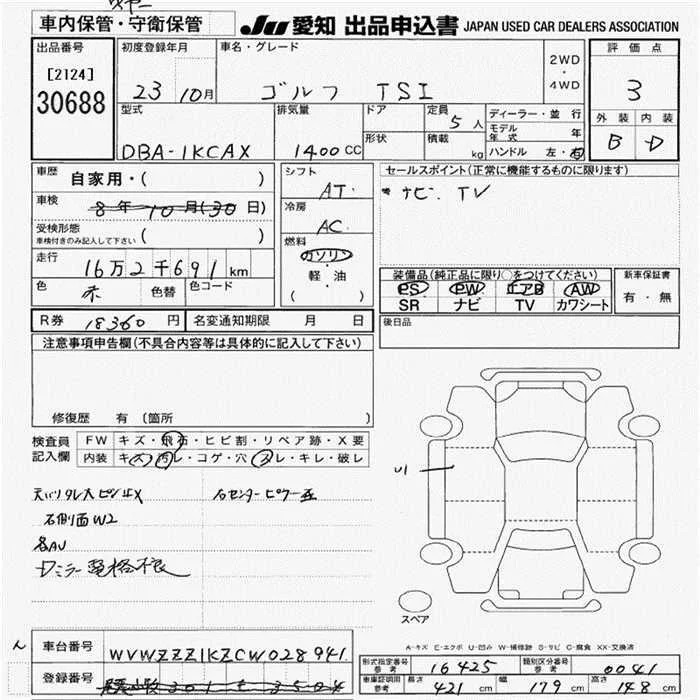 車内保管・守衛保管
JU 愛知 出品申込書 JAPAN USED CAR DEALERS ASSOCIATION
出品番号
[2124]
30688
初度登録年月
23 10月
車名・グレード
ゴルフ TSI
2WD
・
4WD
評価点
3
外装 内装
B D
型式
DBA-1KCAX
排気量
1400 CC
ドア
形状
定員
5人
積載
kg
ディーラー・並行
モデル年式 年
ハンドル 左・右
車歴 自家用・( )
車検 8年10月(30日)
受検形態
車検付きのみ記入して下さい ( )
走行
16万2千691km
色 赤 色替 色コード
シフト
AT
冷房
AC
燃料
ガソリン
・
軽油
( )
セールスポイント(正常に機能するものに限ります)
ナビ. TV
装備品(純正品に限り○をつけてください)
PS PW エアB AW
SR ナビ TV カワシート
新車保証書
有・無
R券 18360円 名変通知期限 月 日
後日品
注意事項申告欄(不具合内容等は具体的に記入して下さい)
修復歴 有 (箇所 )
検査員
記入欄
FW キズ・飛石・ヒビ割・リペア跡・X要
内装 キズ・汚レ・コゲ・穴・スレ・キレ・破レ
天バリタレ大ピン止X
右センターピラー歪
右側面W2
各AU
Dミラー電格不良
U1
スペア
A-キズ E-エクボ U-凹み W-補修跡 S-サビ C-腐食 XX-交換済
車台番号 WVWZZZ1KZCW028941
登録番号
型式指定番号
参考
16425
類別区分番号
参考
0041
車庫証明用
参考
長さ 421 cm 幅 179 cm 高さ 148 cm